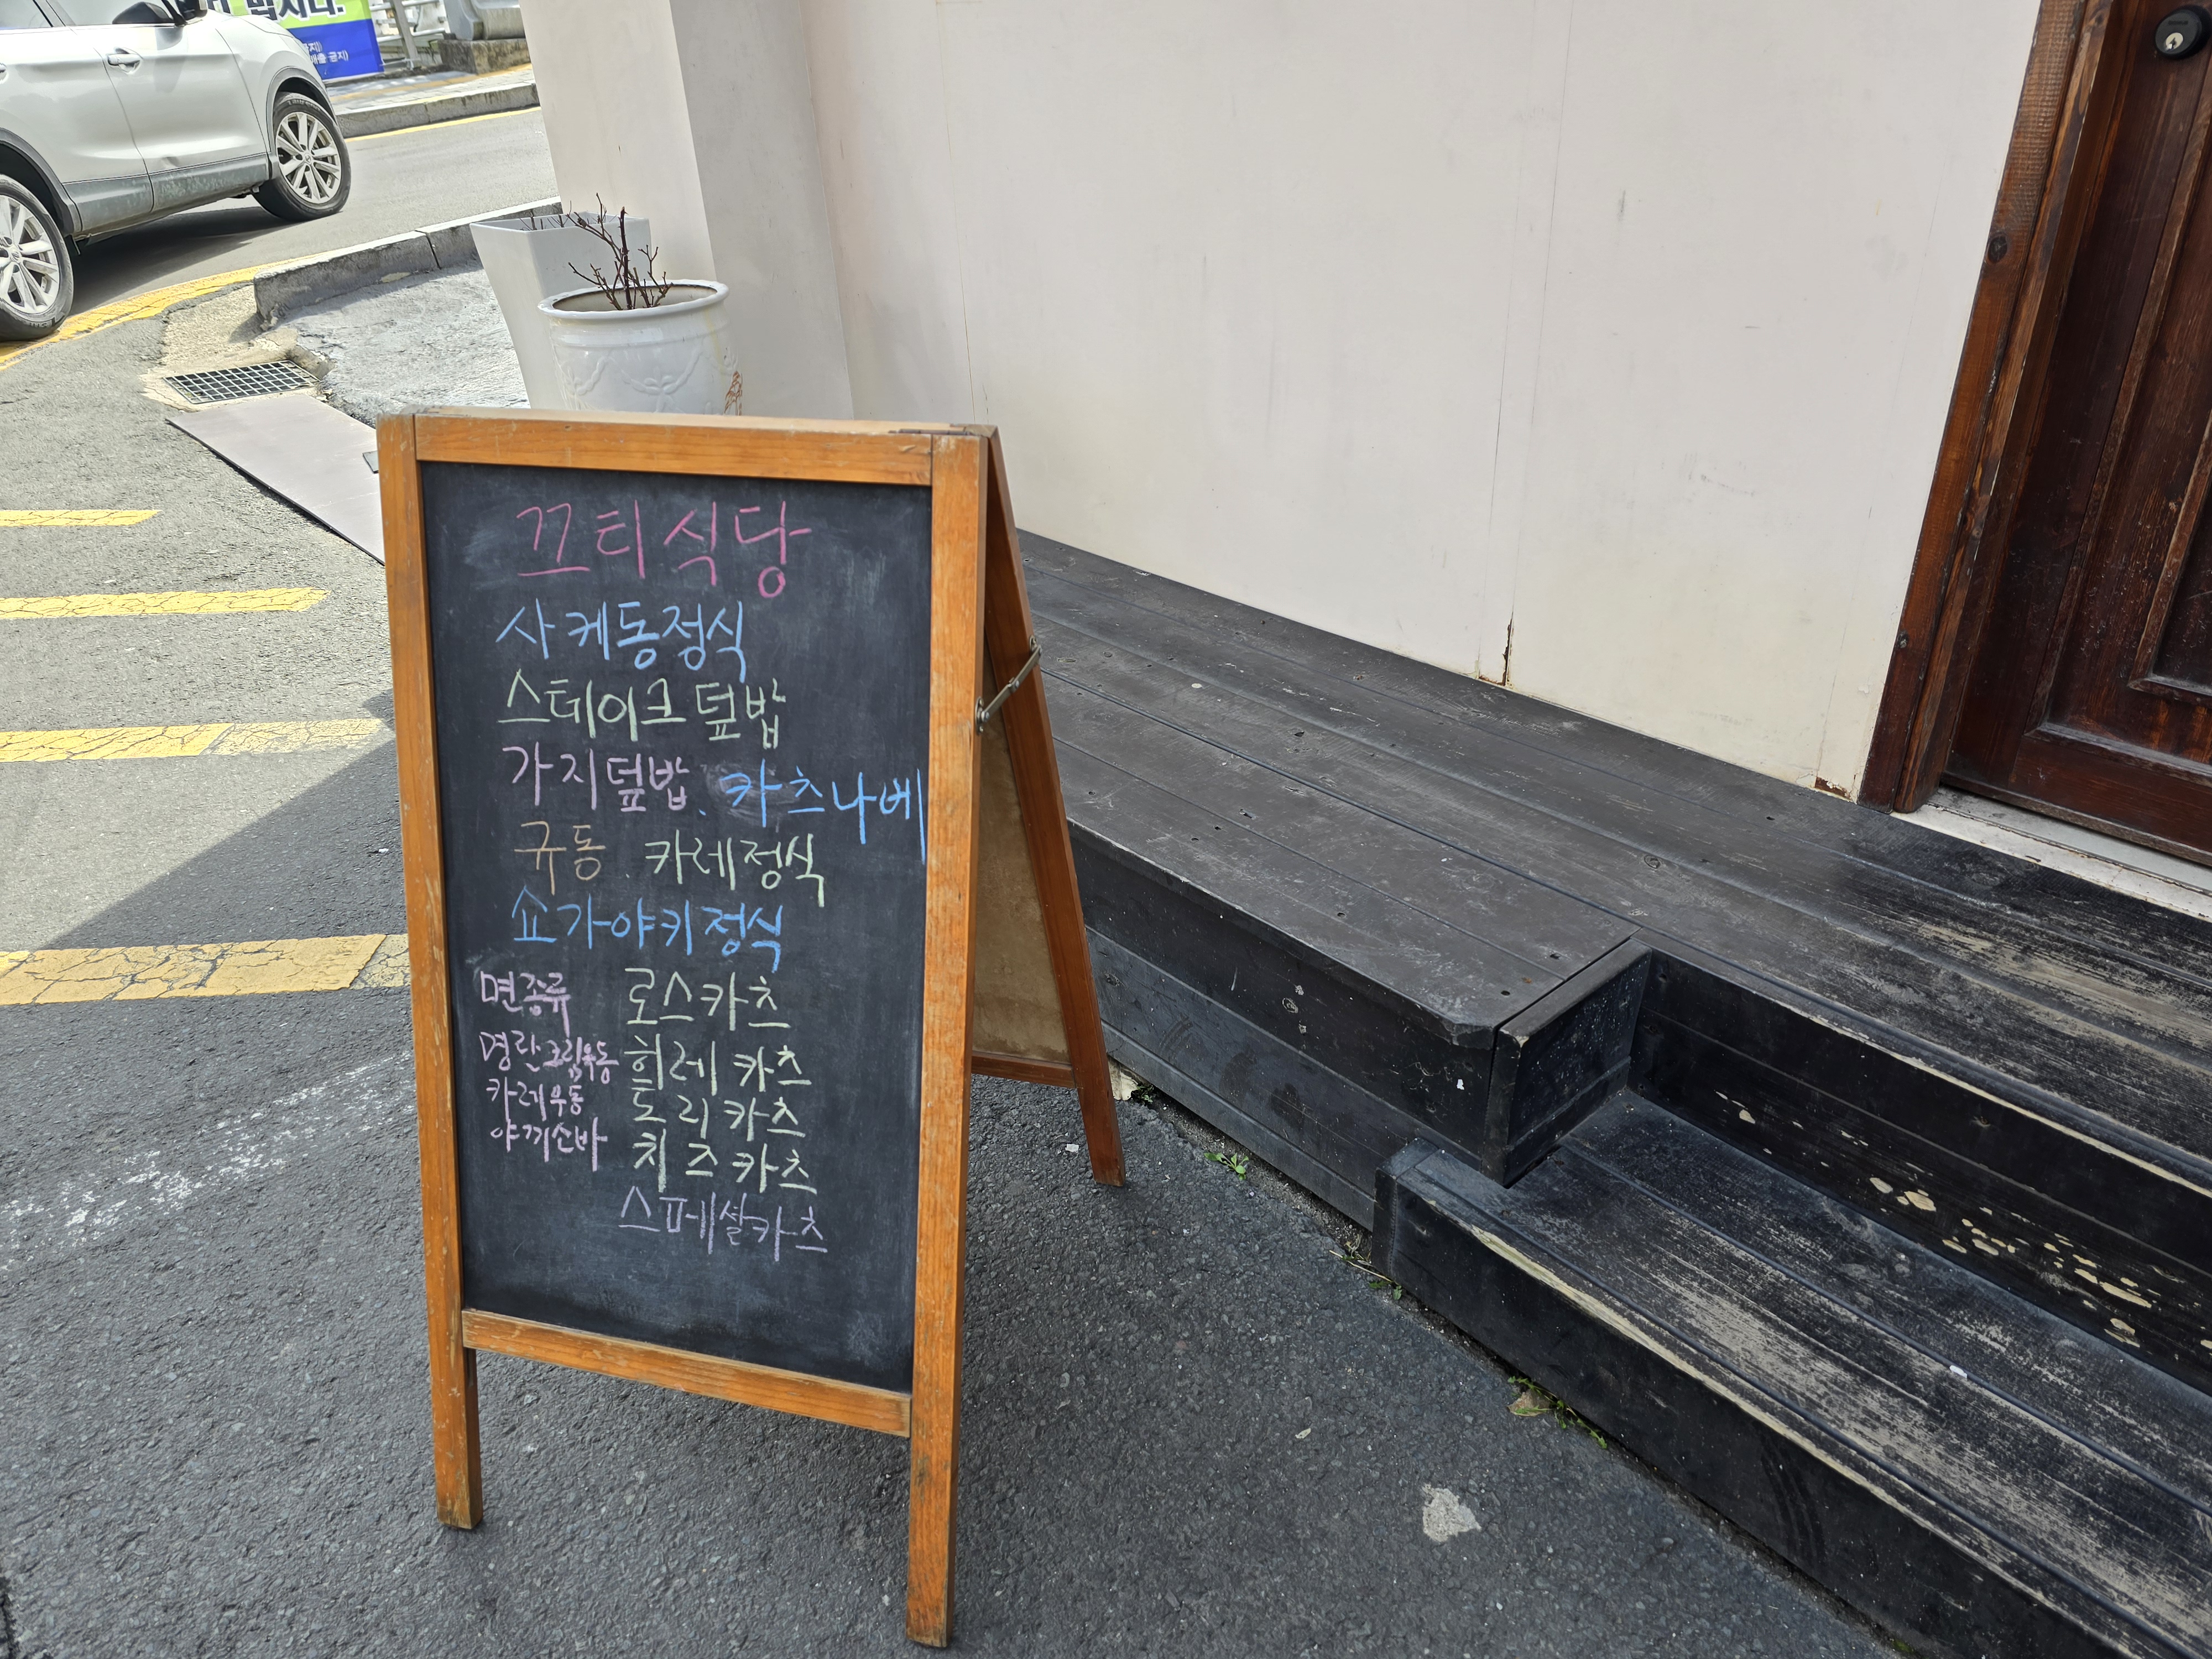 끄티식당
사케동정식
스테이크덮밥
가지덮밥. 카츠나베
규동. 카레정식
쇼가야키정식
면종류
명란크림우동
카레우동
야끼소바
로스카츠
히레카츠
토리카츠
치즈카츠
스페셜카츠